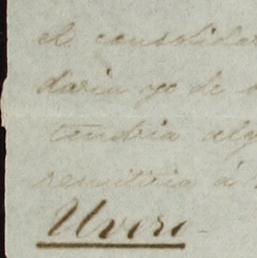 el consolidar
daria yo de
tendria alg
remitiria á
Uvero